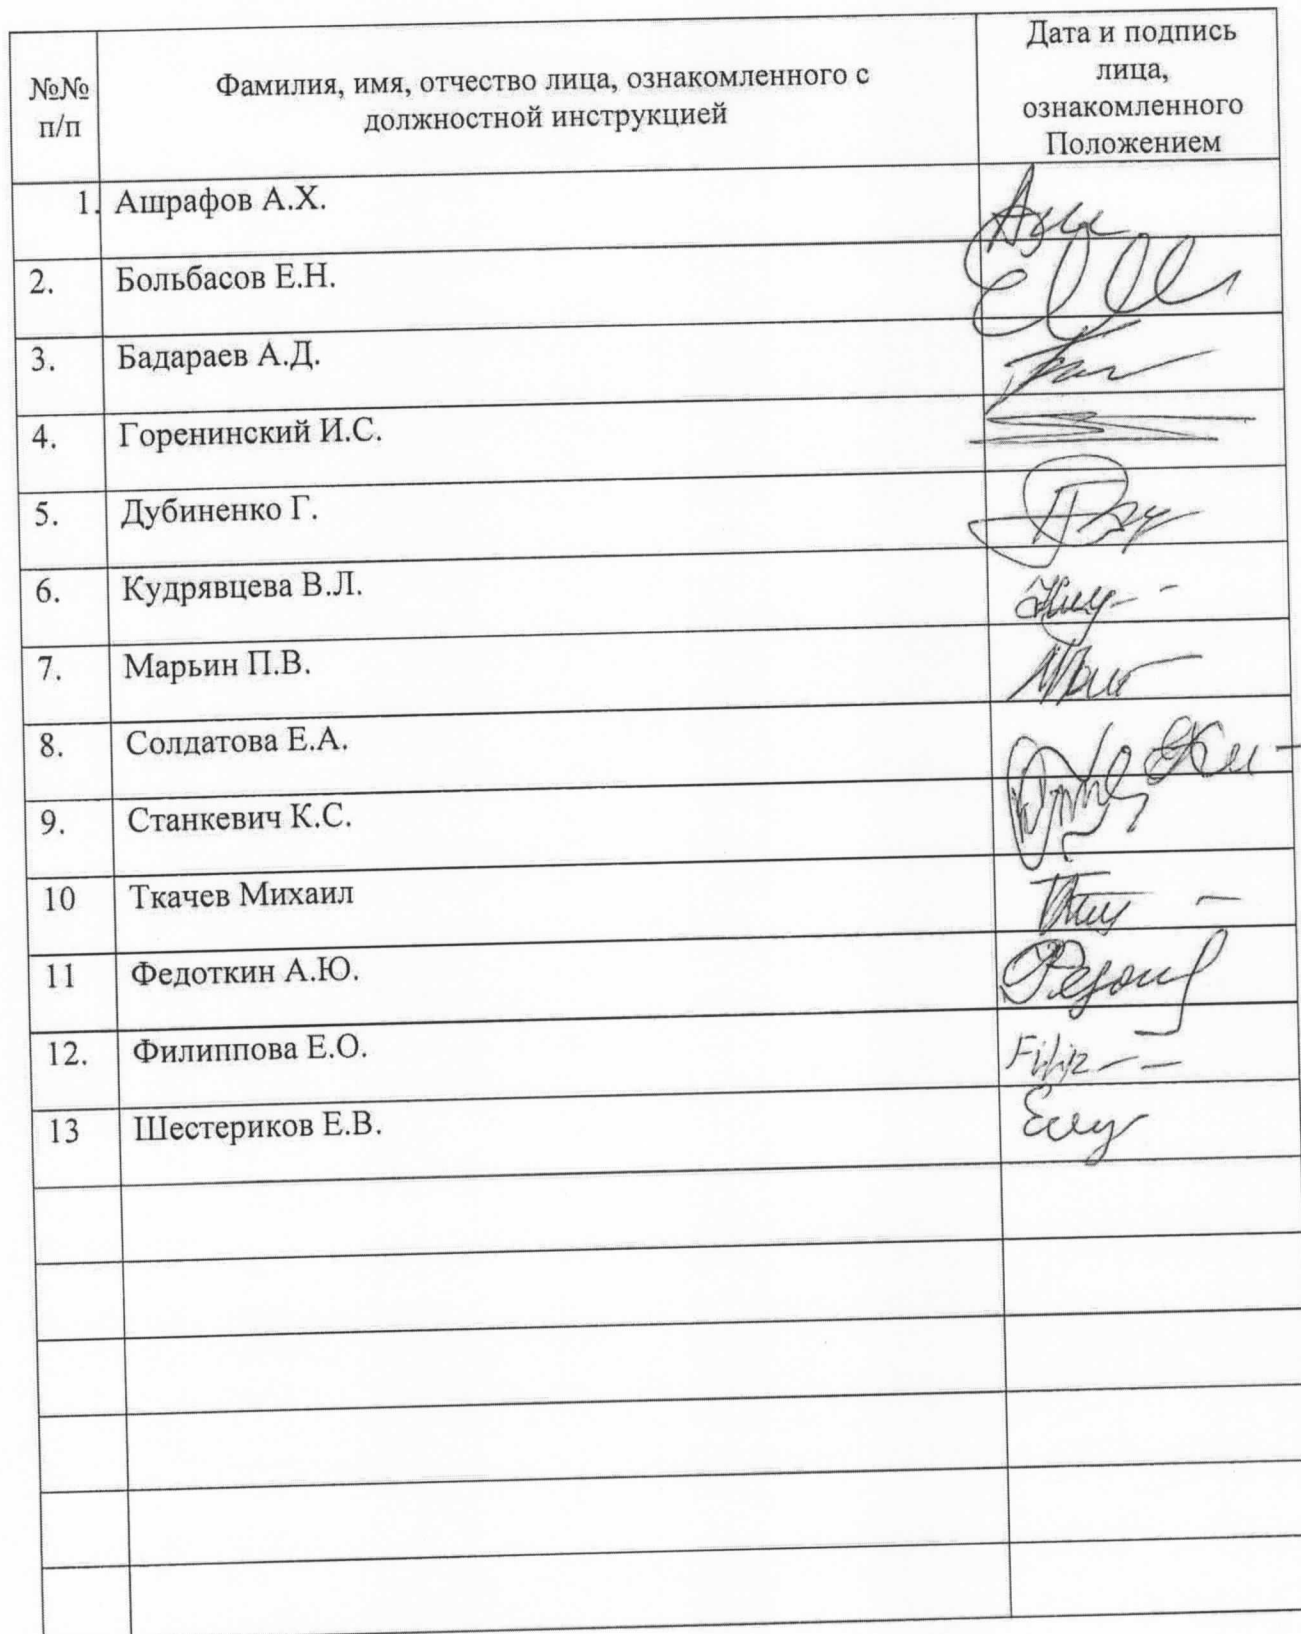 №№ п/п
Фамилия, имя, отчество лица, ознакомленного с
должностной инструкцией
Дата и подпись
лица,
ознакомленного
Положением
1. Ашрафов А.Х.
2. Больбасов Е.Н.
3. Бадараев А.Д.
4. Горенинский И.С.
5. Дубиненко Г.
6. Кудрявцева В.Л.
7. Марьин П.В.
8. Солдатова Е.А.
9. Станкевич К.С.
10 Ткачев Михаил
11 Федоткин А.Ю.
12. Филиппова Е.О.
13 Шестериков Е.В.